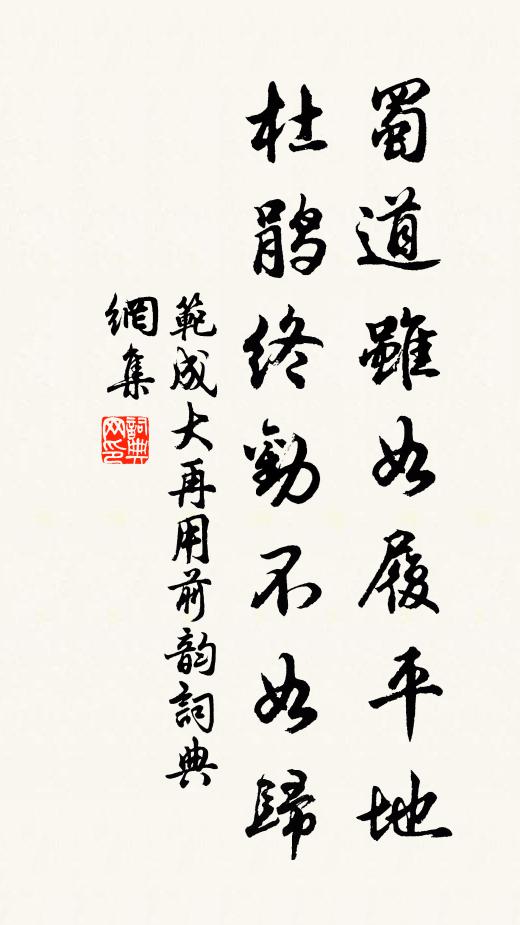 蜀道雖如履平地
杜鵑終勸不如歸
範成大再用前韵詞典
網集
詞典網印